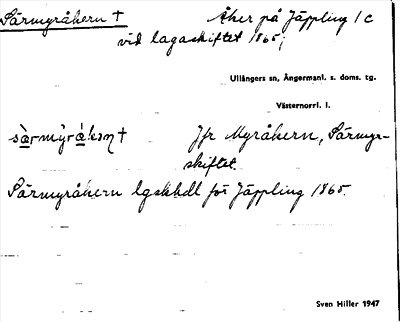 Särmyråkern † Åker på Jäppling 1c
vid lagaskiftet 1865;
Ullångers sn, Ångermanl. s. doms. tg.
Västernorrl. l.
Jfr Myråkern, Särmyr-
skiftet.
Särmyråkern lgskhdl för Jäppling 1865.
Sven Hiller 1947